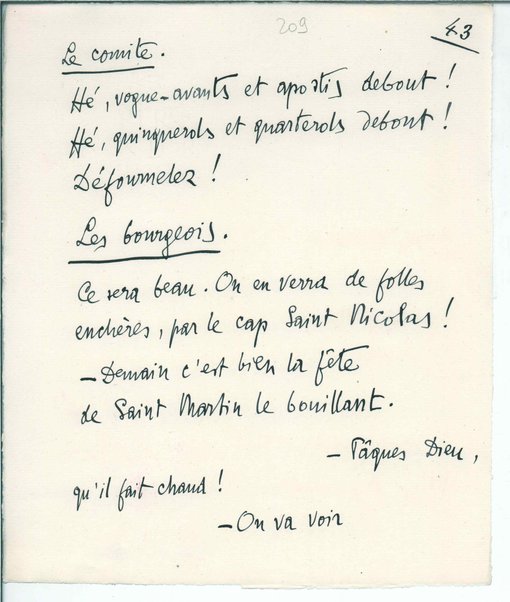 209
43
Le comite.
Hé, vogue-avants et apostis debout !
Hé, quinquerols et quarterols debout !
Défournelez !
Les bourgeois.
Ce sera beau. On en verra de folles
enchères, par le cap Saint Nicolas !
– Demain c'est bien la fête
de Saint Martin le bouillant.
– Pâques Dieu,
qu'il fait chaud !
– On va voir